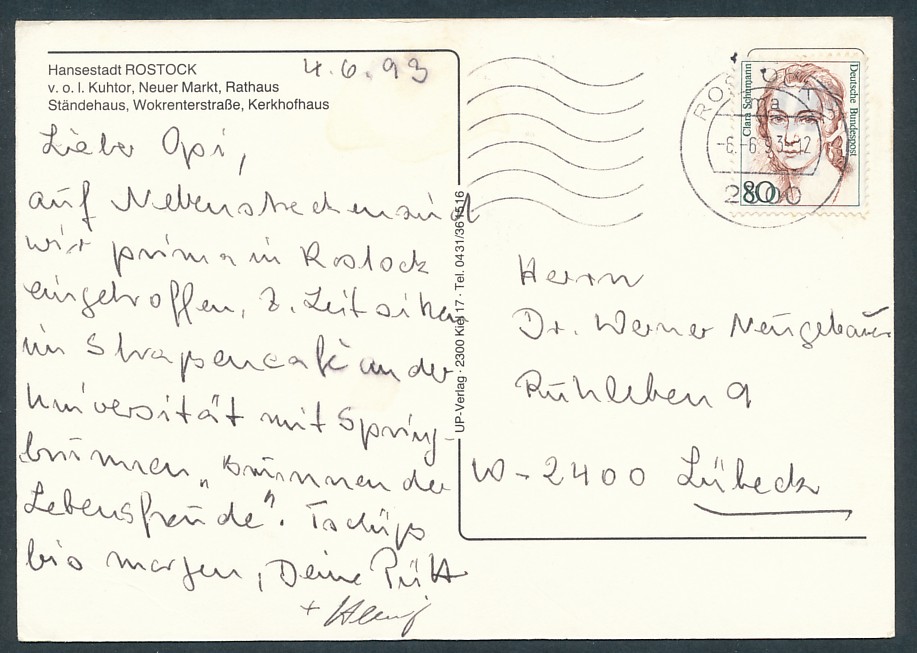 Hansestadt ROSTOCK
v. o. l. Kuhtor, Neuer Markt, Rathaus
Ständehaus, Wokrenterstraße, Kerkhofhaus
4.6.93
Lieber Opi,
auf Nebenstrecken sind
wir prima in Rostock
eingetroffen, z. Zeit sitzen
im Straßencafé an der
Universität mit Spring-
brunnen „Brunnen der
Lebensfreude". Tschüß
bis morgen, Deine
+
UP-Verlag · 2300 Kiel 17 · Tel. 0431/361516
ROSTOCK
-6.-6.93-12
2500
Clara Schumann
Deutsche Bundespost
80
Herrn
Dr. Werner Neugebauer
Ruhleben 9
W-2400 Lübeck